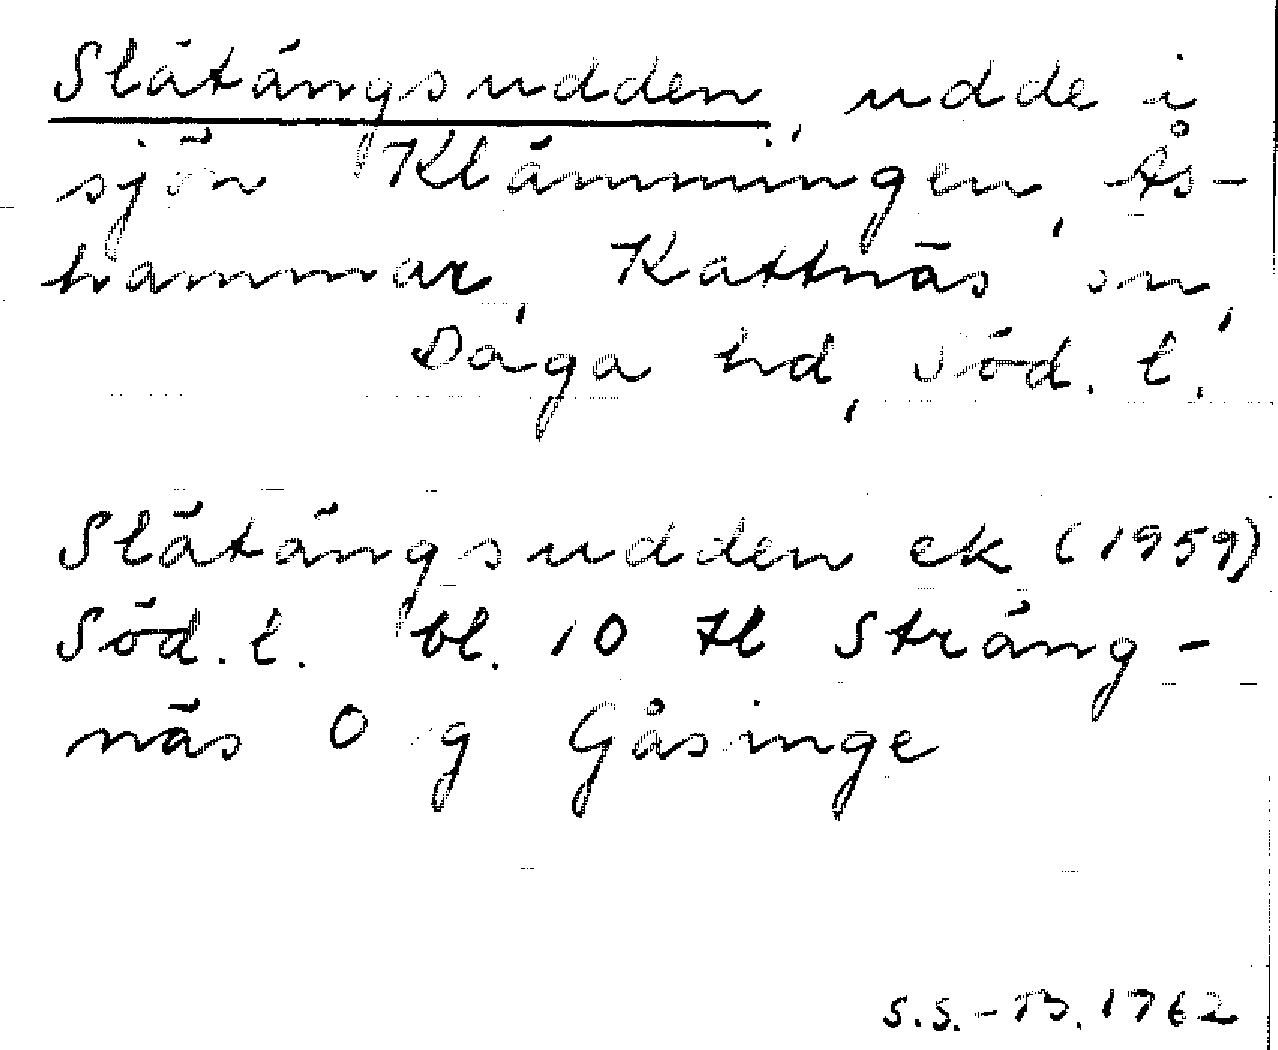 Slätängsudden, udde i
sjön Klämmingen, Ås-
hammar, Kattnäs sn,
Daga hd, Söd. l.
Slätängsudden ek (1959)
Söd. l. bl. 10 tl Sträng-
näs O g Gåsinge
S.S.-B. 1962